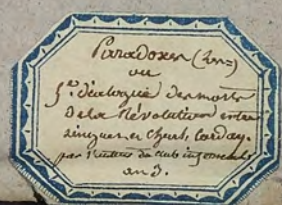 Paradoxes
ou
5e. dialogue des morts
De la Révolution entre
et Charl. Corday.
par l'auteur du club infernal
an 3.